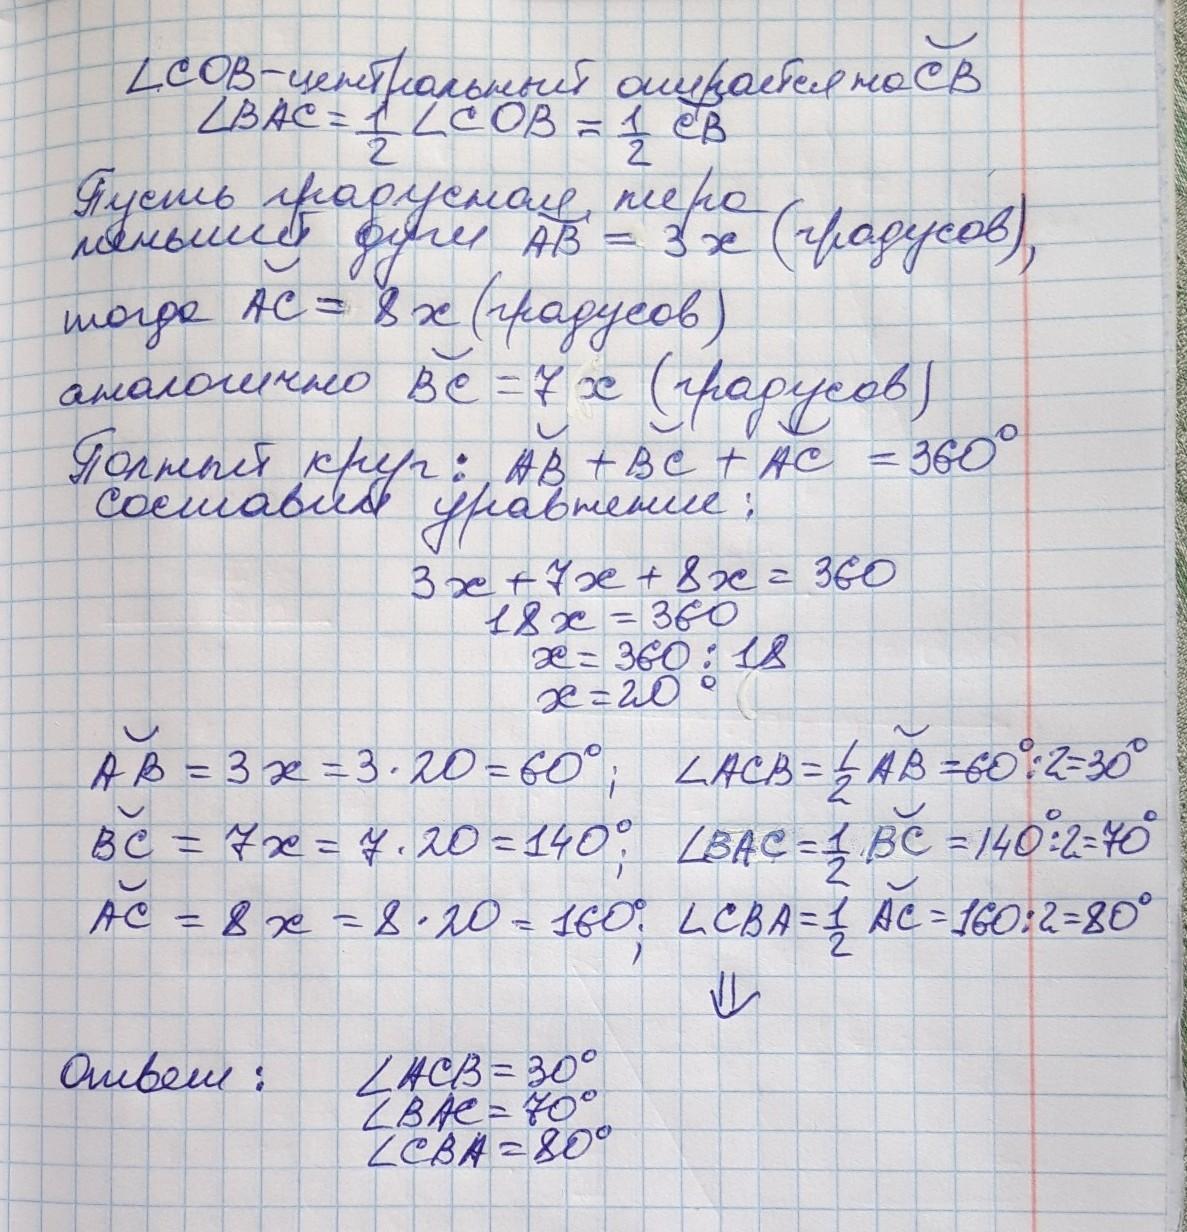 ∠COB – центральный опирается на C͝B
∠BAC = 1/2 ∠COB = 1/2 C͝B
Пусть градусная мера
меньшей дуги A͝B = 3x (градусов),
тогда A͝C = 8x (градусов)
аналогично B͝C = 7x (градусов)
Полный круг: A͝B + B͝C + A͝C = 360°
составим уравнение:
3x + 7x + 8x = 360
18x = 360
x = 360 : 18
x = 20°
A͝B = 3x = 3·20 = 60°; ∠ACB = 1/2 A͝B = 60°:2=30°
B͝C = 7x = 7·20 = 140°; ∠BAC = 1/2 B͝C = 140°:2=70°
A͝C = 8x = 8·20 = 160°; ∠CBA = 1/2 A͝C = 160:2=80°
⇓
Ответ: ∠ACB = 30°
∠BAC = 70°
∠CBA = 80°